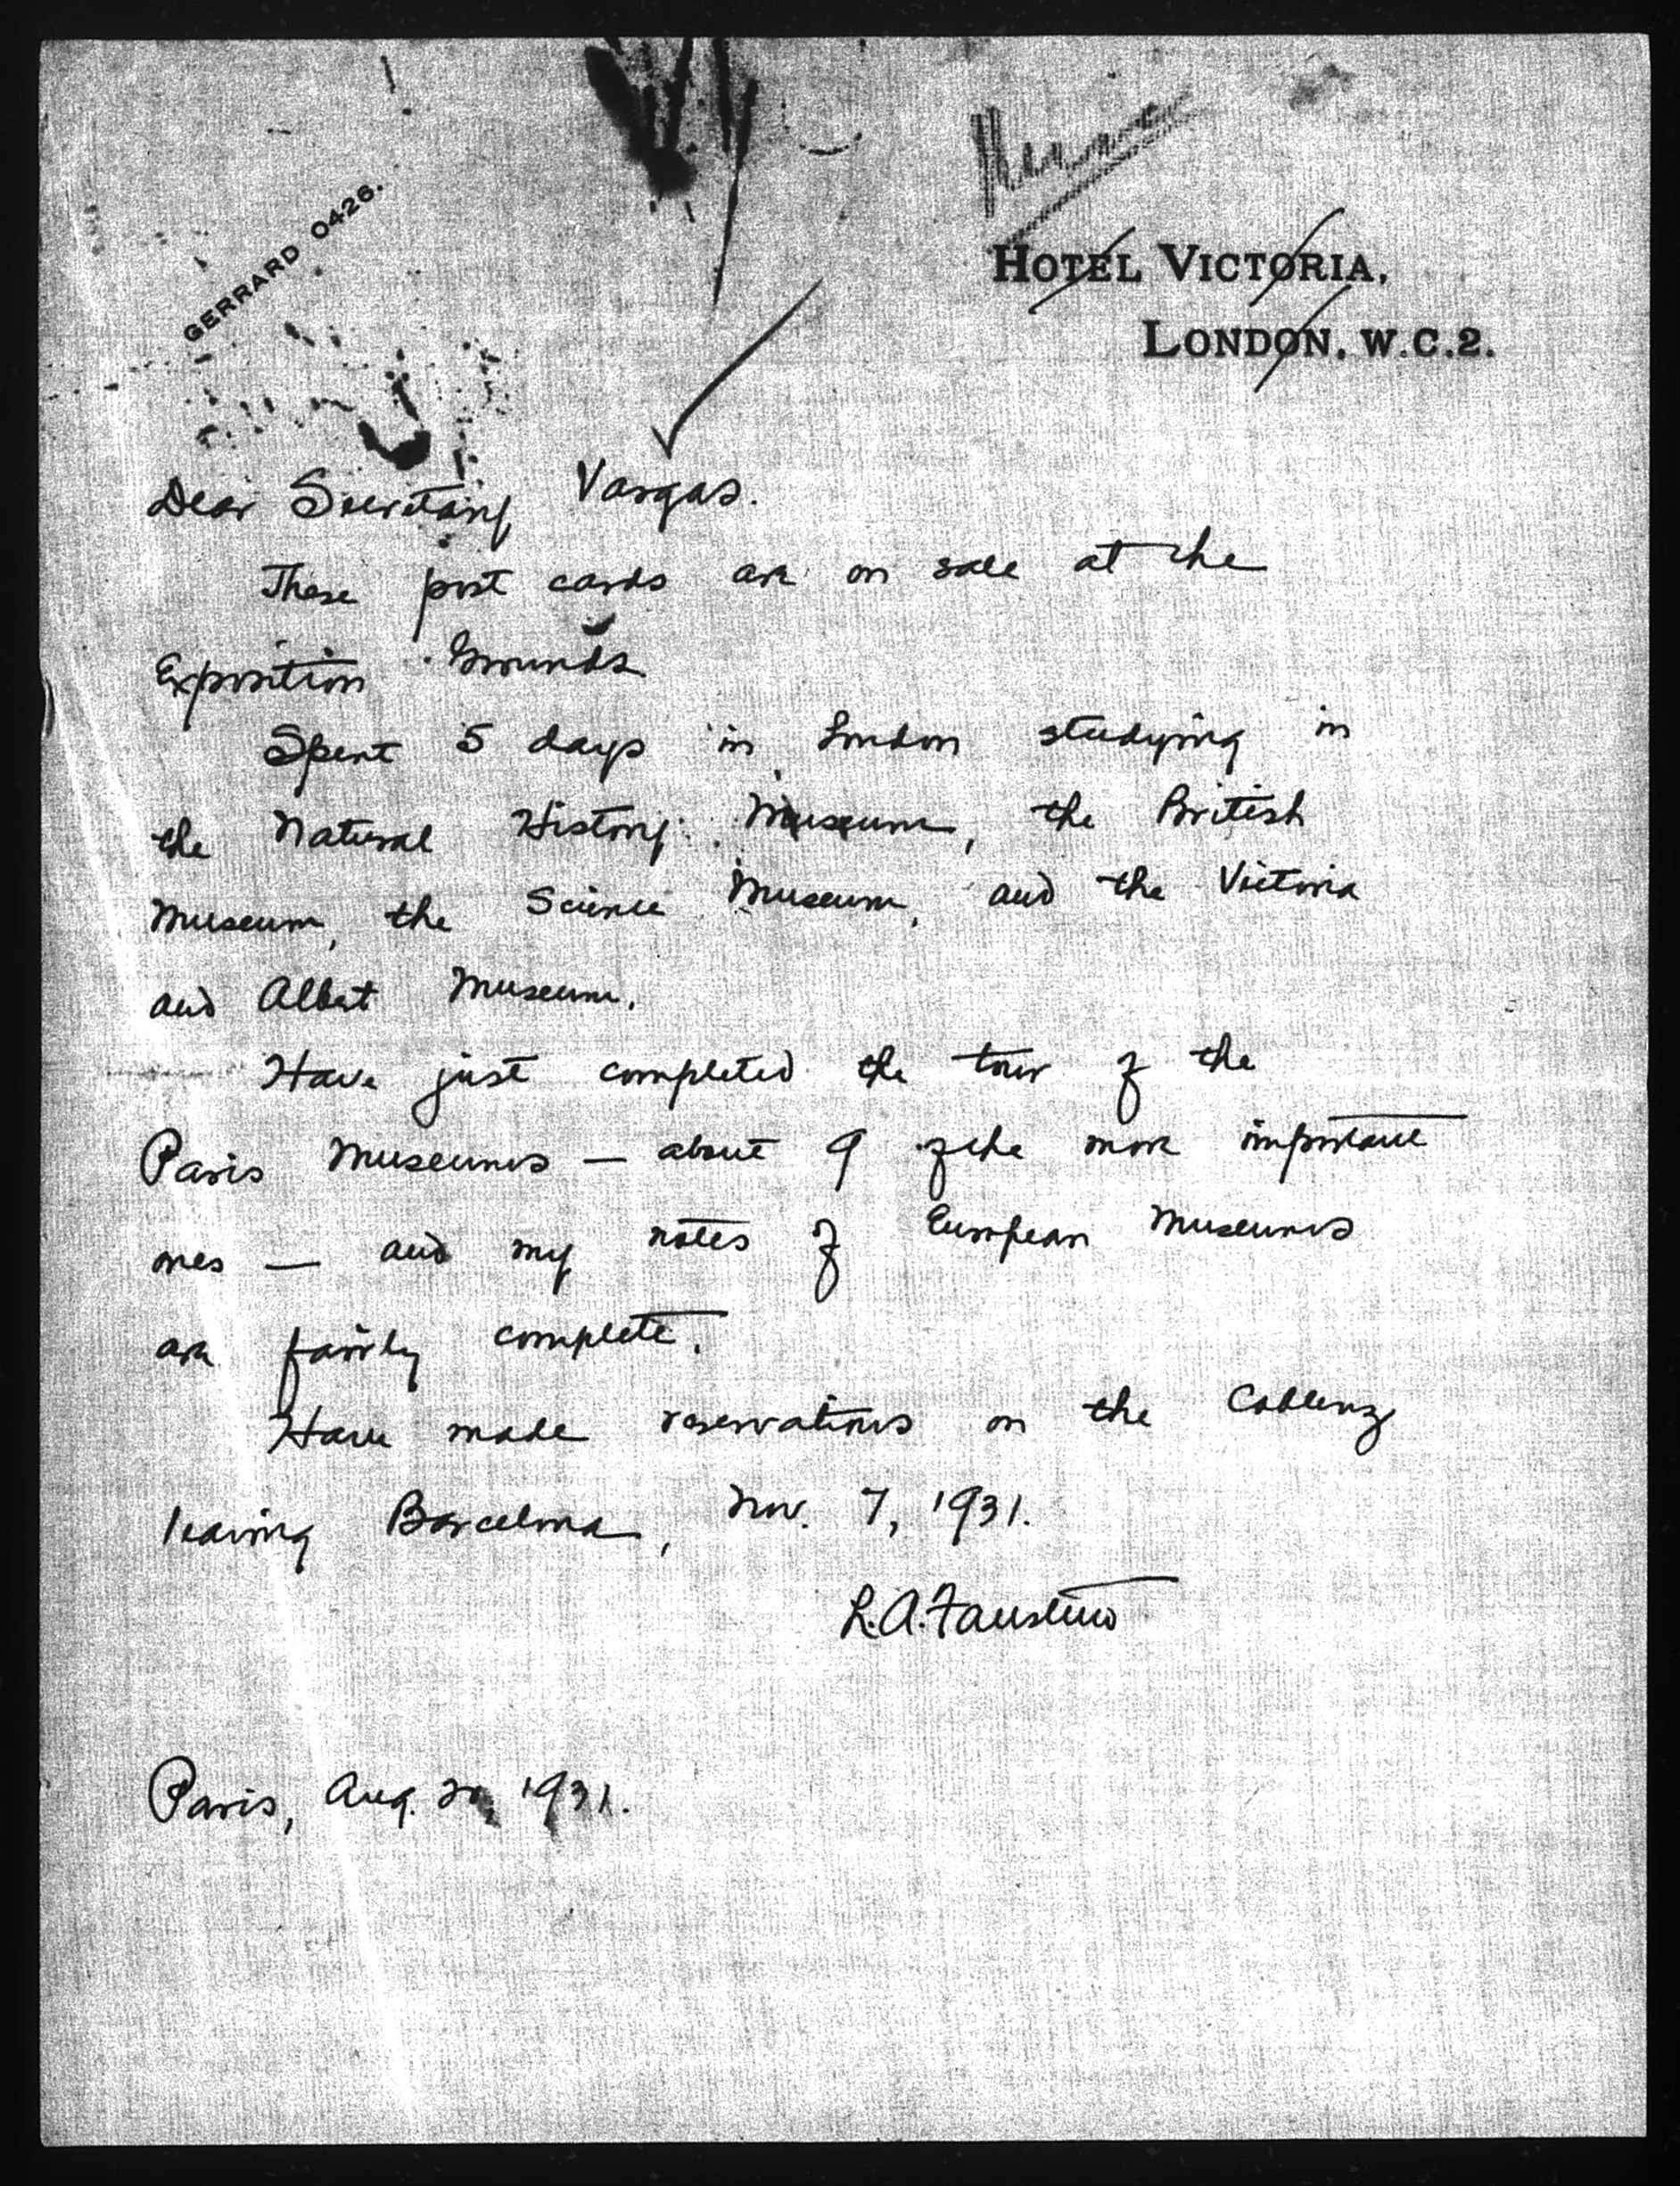 GERRARD 0426.
HOTEL VICTORIA,
LONDON, W.C.2.
Dear Secretary Vargas.
These post cards are on sale at the
Exposition Grounds
Spent 5 days in London studying in
the Natural History Museum, the British
Museum, the Science Museum, and the Victoria
and Albert Museum.
Have just completed the tour of the
Paris Museums — about 9 of the more important
ones — and my notes of European Museums
are fairly complete.
Have made reservations on the Coblenz
leaving Barcelona, Nov. 7, 1931.
L.A. Faustino
Paris, Aug. 1931.